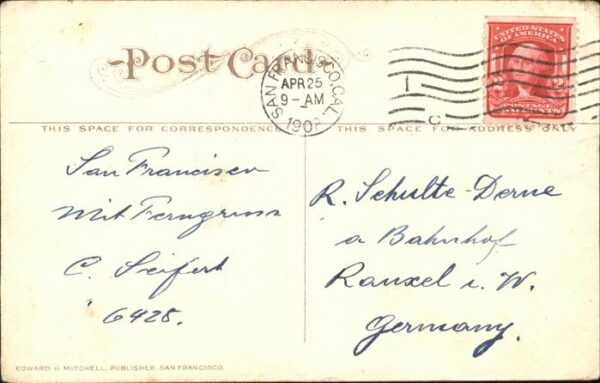 Post Card
SAN FRANCISCO, CAL.
APR 25
9-AM
1908
UNITED STATES
OF AMERICA
THIS SPACE FOR CORRESPONDENCE
THIS SPACE FOR ADDRESS ONLY
San Francisco
mit Ferngruss
C. Seifert
6428.
R. Schulte-Derne
a Bahnhof
Rauxel i. W.
Germany.
EDWARD H. MITCHELL, PUBLISHER, SAN FRANCISCO.